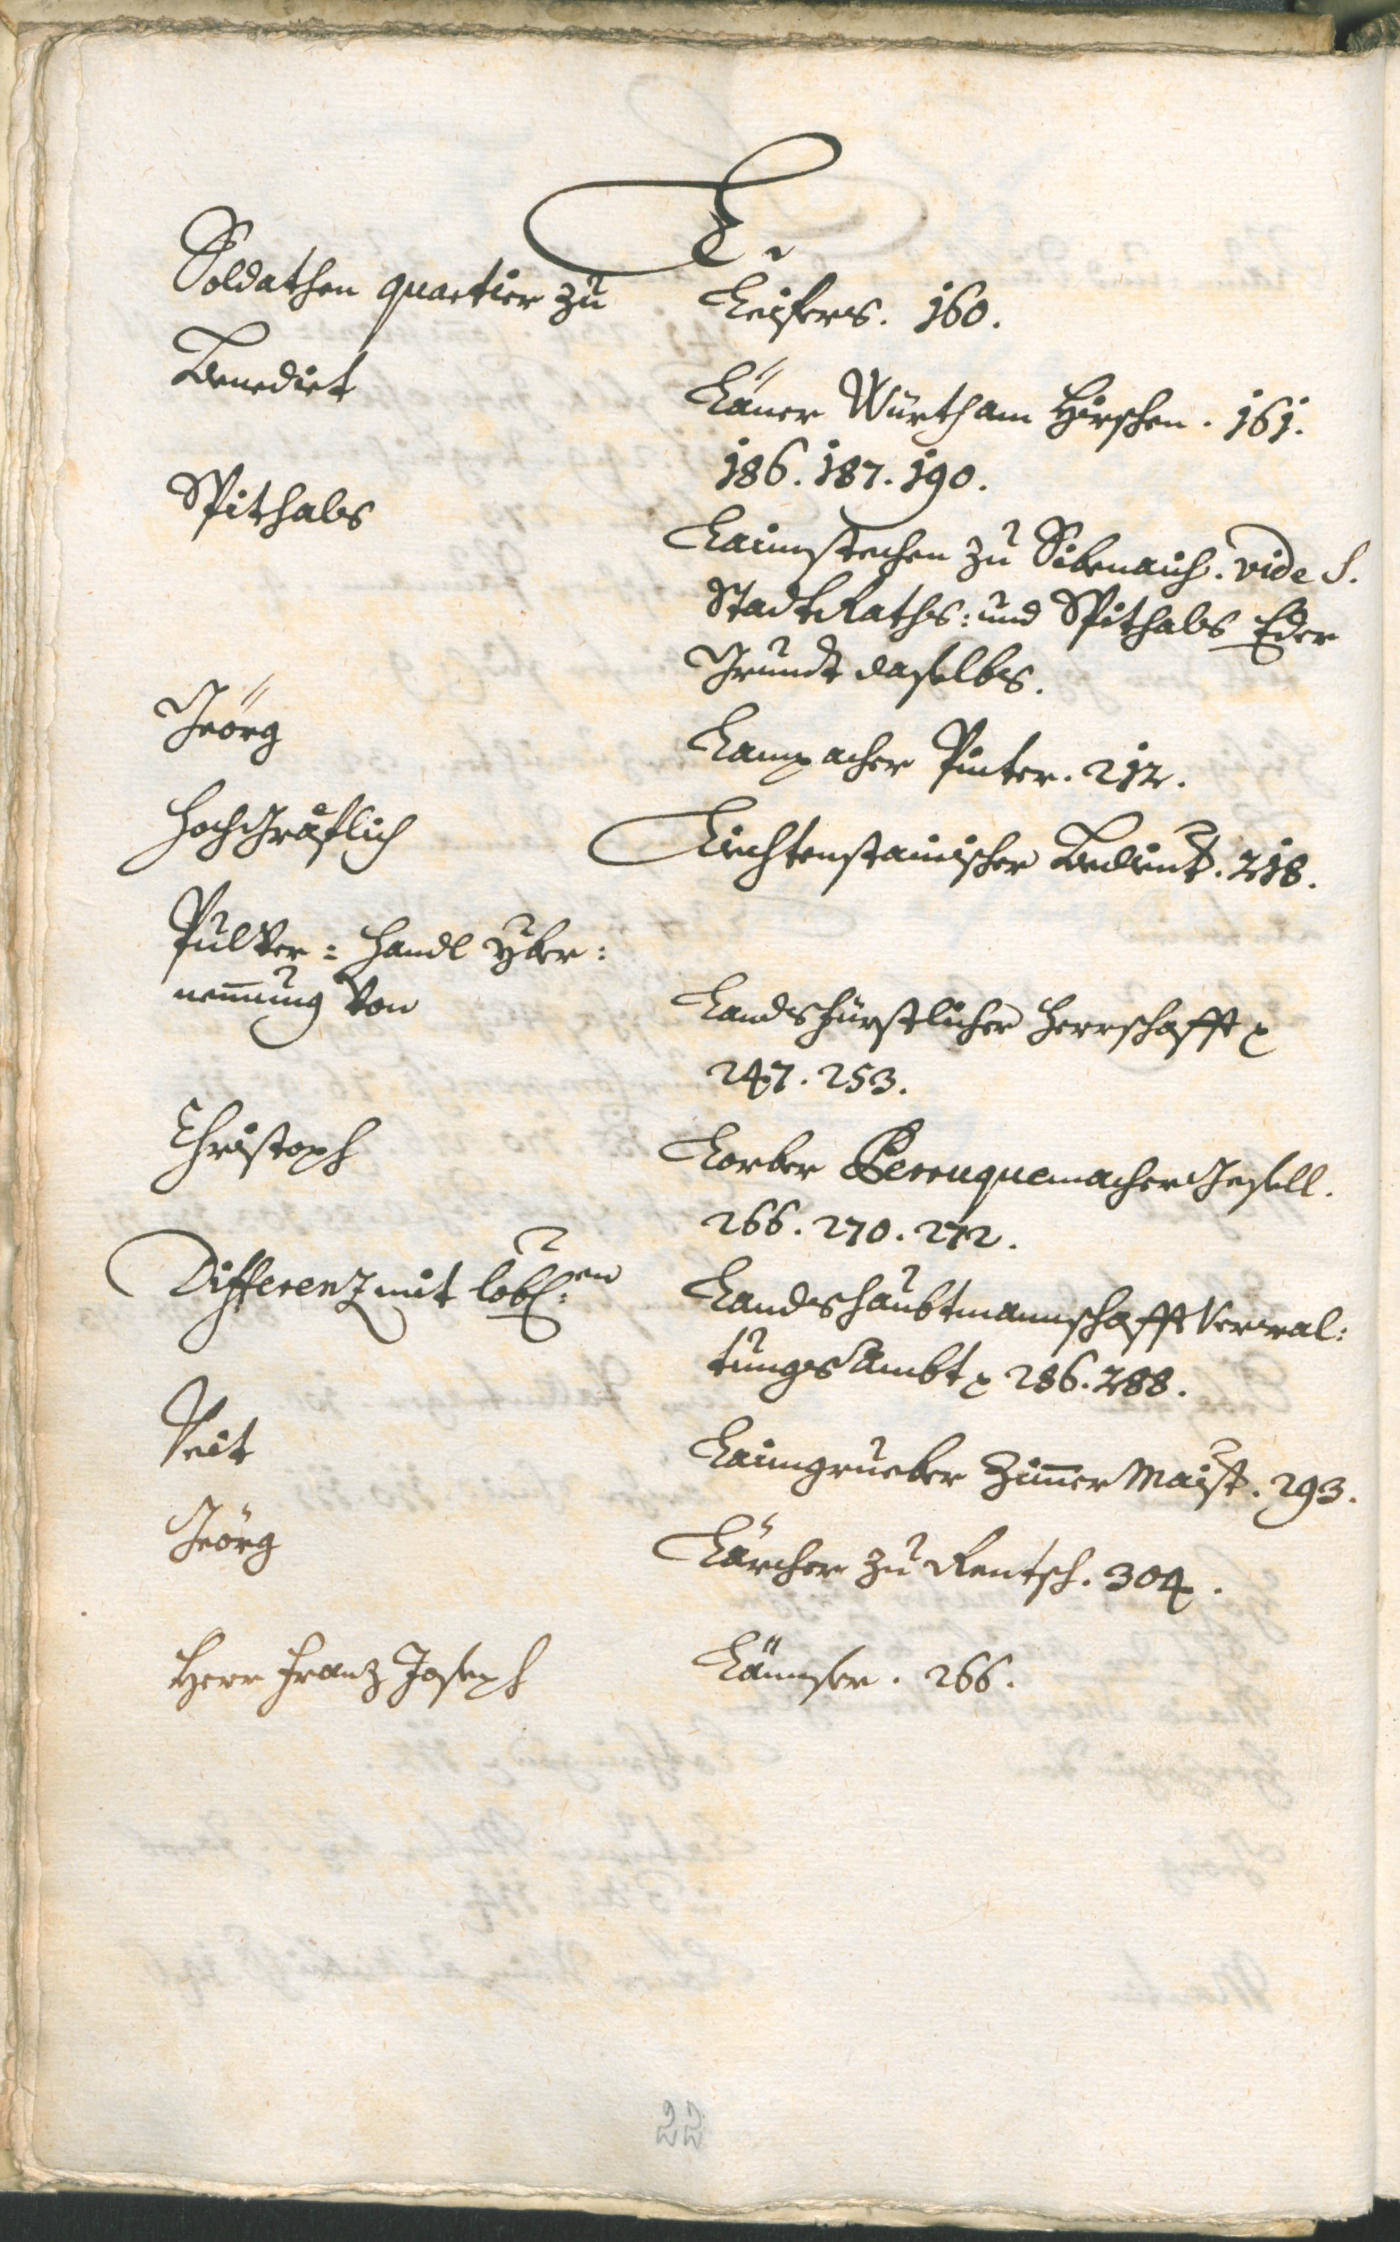 L.
Soldathen quartier zu Leifers. 160.
Benedict Läner Würth am Hirschen. 161.
186. 187. 190.
Spithals Laimstechen zu Sibenaich. vide S.
StadtRaths: und Spithals Eder
Grundt daselbs.
Jeörg Lampacher Pinter. 212.
HochGräflich Liechtenstainischer Bedient. 218.
Pulver= Handl yber:
nemung von Landsfürstlicher Herrschafft
247. 253.
Christoph Lorber Perruquemacher Gesell.
266. 270. 272.
Differenz mit löbl:en Landshaubtmannschafft Verwal:
tungs Ambt 286. 288.
Veit Laimgrueber Zimer Maist. 293.
Jeörg Lärcher zu Rentsch. 304.
Herr Franz Joseph Länser. 266.
22